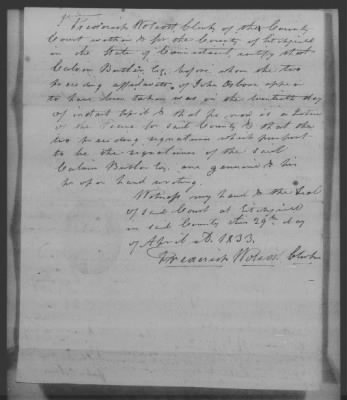 I Frederick Wolcott Clerk of the County
Court within & for the County of Litchfield
in the State of Connecticut, certify that
Calvin Butler Esq. before whom the two
preceding affidavits of John Osborn appear
to have been taken was on the twentieth day
of instant April & that he now is a Justice
of the Peace for said County & that the
two preceding signatures which purport
to be the signatures of the said
Calvin Butler Esq. are genuine & his
proper hand writing.
Witness my hand & the Seal
of said Court at Litchfield
in said County this 29th day
of April AD. 1833.
Frederick Wolcott Clerk